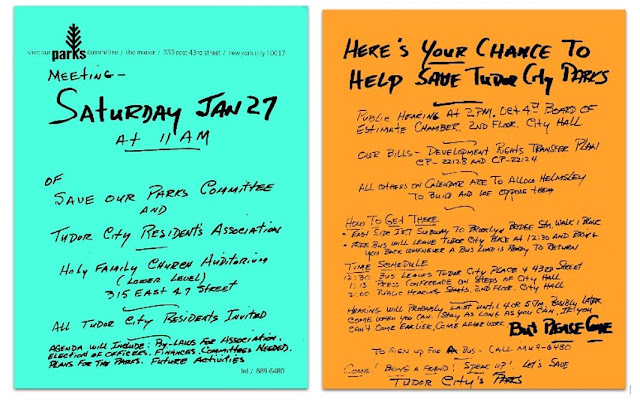 save our parks committee / the manor / 333 east 43rd street / new york city 10017
MEETING-
SATURDAY JAN 27
AT 11 AM
OF
SAVE OUR PARKS COMMITTEE
AND
TUDOR CITY RESIDENT'S ASSOCIATION
HOLY FAMILY CHURCH AUDITORIUM
(LOWER LEVEL)
315 EAST 47 STREET
ALL TUDOR CITY RESIDENTS INVITED
AGENDA WILL INCLUDE: BY-LAWS FOR ASSOCIATION.
ELECTION OF OFFICERS, FINANCES, COMMITTEES NEEDED.
PLANS FOR THE PARKS. FUTURE ACTIVITIES
tel / 689-6480
HERE'S YOUR CHANCE TO
HELP SAVE TUDOR CITY PARKS
PUBLIC HEARING AT 2 PM, OCT 4TH BOARD OF
ESTIMATE CHAMBER, 2ND FLOOR, CITY HALL
OUR BILLS - DEVELOPMENT RIGHTS TRANSFER PLAN
CP-22123 AND CP-22124
ALL OTHERS ON CALENDAR ARE TO ALLOW HELMSLEY
TO BUILD AND WE OPPOSE THEM
HOW TO GET THERE
• EAST SIDE IRT SUBWAY TO BROOKLYN BRIDGE STA, WALK 1 BLOCK
• FREE BUS WILL LEAVE TUDOR CITY PLACE AT 12:30 AND BRING
YOU BACK WHENEVER A BUS LOAD IS READY TO RETURN
TIME SCHEDULE
12:30 BUS LEAVES TUDOR CITY PLACE & 43RD STREET
1:15 PRESS CONFERENCE ON STEPS OF CITY HALL
2:00 PUBLIC HEARING STARTS, 2ND FLOOR, CITY HALL
HEARING WILL PROBABLY LAST UNTIL 4 OR 5 PM, POSSIBLY LATER
COME WHEN YOU CAN! STAY AS LONG AS YOU CAN, IF YOU
CAN'T COME EARLIER, COME AFTER WORK BUT PLEASE COME
TO SIGN UP FOR A BUS - CALL MU9-6480
COME! BRING A FRIEND! SPEAK UP! LET'S SAVE
TUDOR CITY'S PARKS